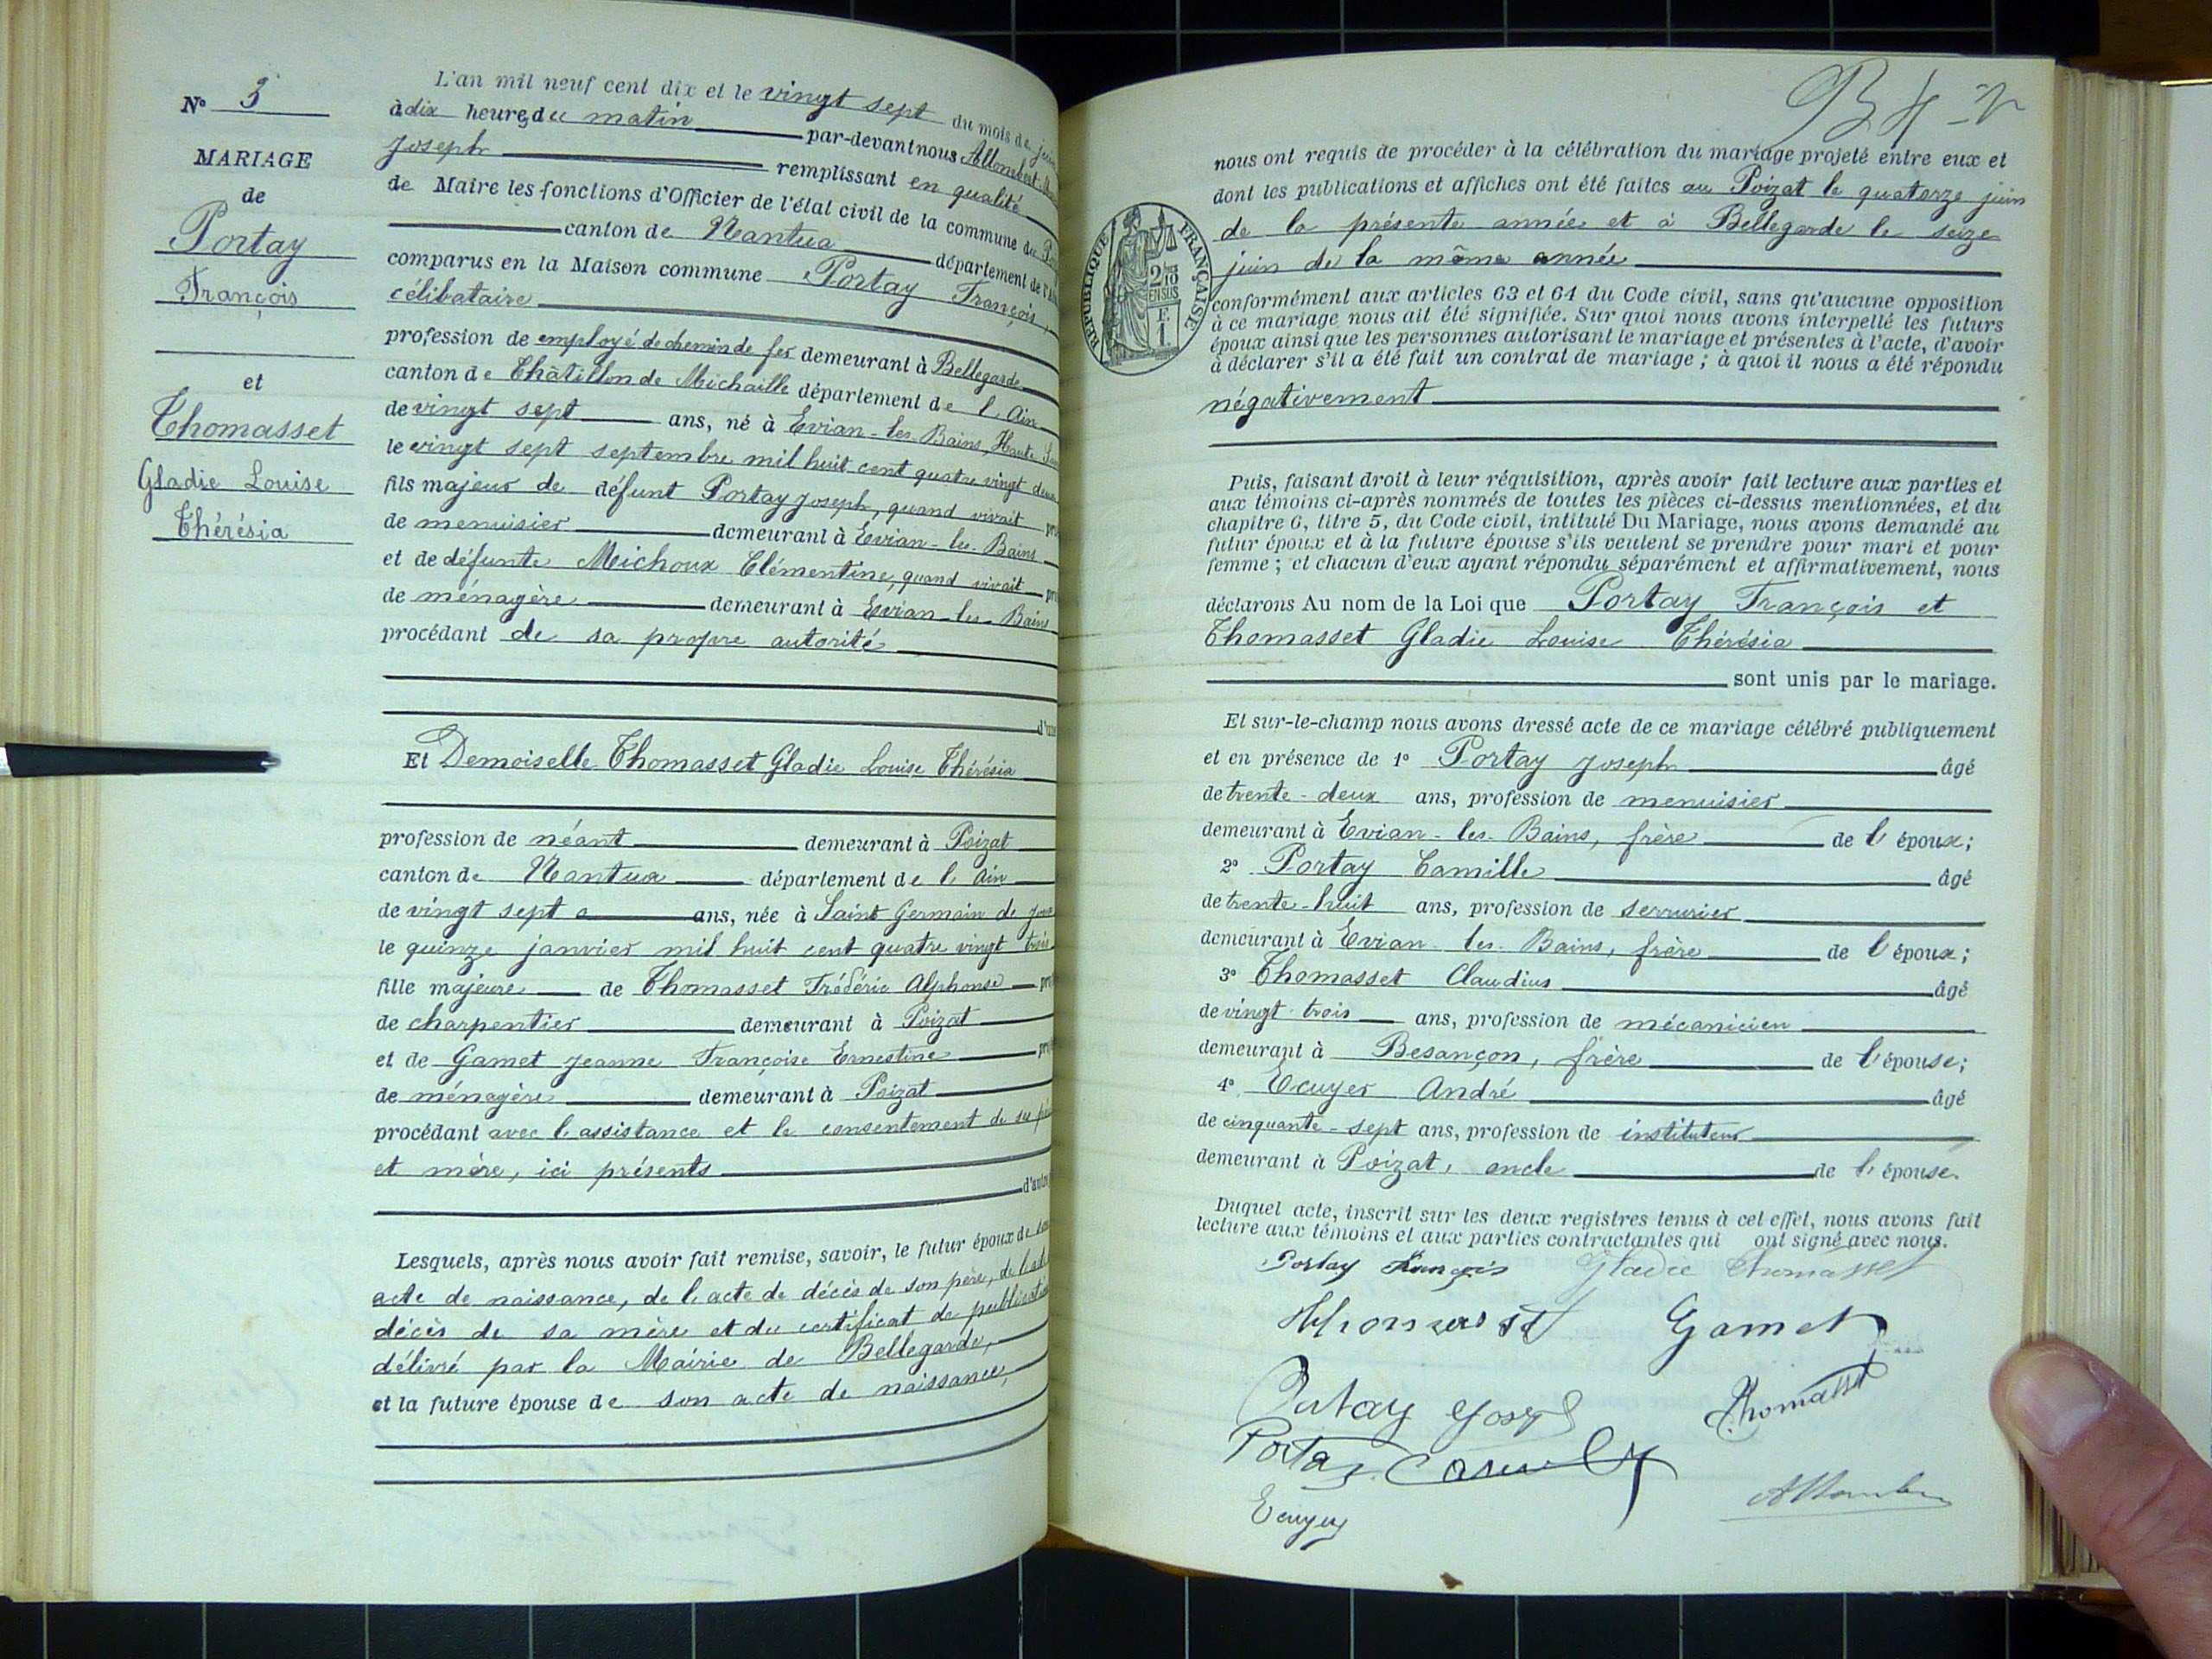 N° 3
MARIAGE
de
Portay
François
et
Thomasset
Gladie Louise
Thérésia
L'an mil neuf cent dix et le vingt sept du mois de
à dix heures du matin par-devant nous
Joseph remplissant en qualité
de Maire les fonctions d'Officier de l'état civil de la commune du
canton de Nantua département de
comparus en la Maison commune Portay François,
célibataire
profession de employé de chemin de fer demeurant à Bellegarde
canton de Châtillon de Michaille département de l'Ain
de vingt sept ans, né à Evian-les-Bains, Haute
le vingt sept septembre mil huit cent quatre vingt
fils majeur de défunt Portay Joseph, quand vivait
de menuisier demeurant à Evian-les-Bains
et de défunte Michoux Clémentine, quand vivait
de ménagère demeurant à Evian-les-Bains
procédant de sa propre autorité
Et Demoiselle Thomasset Gladie Louise Thérésia
profession de néant demeurant à Poizat
canton de Nantua département de l'Ain
de vingt sept ans, née à Saint Germain de
le quinze janvier mil huit cent quatre vingt trois
fille majeure de Thomasset Frédéric Alphonse
de charpentier demeurant à Poizat
et de Gamet Jeanne Françoise Ernestine
de ménagère demeurant à Poizat
procédant avec l'assistance et le consentement de ses
et mère, ici présents
Lesquels, après nous avoir fait remise, savoir, le futur époux de
acte de naissance, de l'acte de décès de son père, de
décès de sa mère et du certificat de
délivré par la Mairie de Bellegarde,
et la future épouse de son acte de naissance,
nous ont requis de procéder à la célébration du mariage projeté entre eux et
dont les publications et affiches ont été faites au Poizat le quatorze juin
de la présente année et à Bellegarde le seize
juin de la même année
RÉPUBLIQUE FRANÇAISE
2/10
EN SUS
F.
1.
conformément aux articles 63 et 64 du Code civil, sans qu'aucune opposition
à ce mariage nous ait été signifiée. Sur quoi nous avons interpellé les futurs
époux ainsi que les personnes autorisant le mariage et présentes à l'acte, d'avoir
à déclarer s'il a été fait un contrat de mariage ; à quoi il nous a été répondu
négativement
Puis, faisant droit à leur réquisition, après avoir fait lecture aux parties et
aux témoins ci-après nommés de toutes les pièces ci-dessus mentionnées, et du
chapitre 6, titre 5, du Code civil, intitulé Du Mariage, nous avons demandé au
futur époux et à la future épouse s'ils veulent se prendre pour mari et pour
femme ; et chacun d'eux ayant répondu séparément et affirmativement, nous
déclarons Au nom de la Loi que Portay François et
Thomasset Gladie Louise Thérésia
sont unis par le mariage.
Et sur-le-champ nous avons dressé acte de ce mariage célébré publiquement
et en présence de 1° Portay Joseph âgé
de trente-deux ans, profession de menuisier
demeurant à Evian-les-Bains, frère de l'époux ;
2° Portay Camille âgé
de trente-huit ans, profession de serrurier
demeurant à Evian-les-Bains, frère de l'époux ;
3° Thomasset Claudius âgé
de vingt-trois ans, profession de mécanicien
demeurant à Besançon, frère de l'épouse ;
4° Ecuyer André âgé
de cinquante-sept ans, profession de instituteur
demeurant à Poizat, oncle de l'épouse.
Duquel acte, inscrit sur les deux registres tenus à cet effet, nous avons fait
lecture aux témoins et aux parties contractantes qui ont signé avec nous.
Portay François Gladie Thomasset
Thomasset Gamet
Portay Joseph Thomasset
Portay Camille
Ecuyer